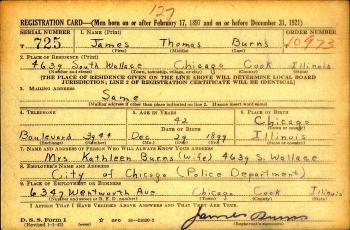 127
REGISTRATION CARD—(Men born on or after February 17, 1897 and on or before December 31, 1921)
SERIAL NUMBER 1. NAME (Print) ORDER NUMBER
T 725 James Thomas Burns 10973
(First) (Middle) (Last)
2. PLACE OF RESIDENCE (Print)
4639 South Wallace Chicago Cook Illinois
(Number and street) (Town, township, village, or city) (County) (State)
[THE PLACE OF RESIDENCE GIVEN ON THE LINE ABOVE WILL DETERMINE LOCAL BOARD
JURISDICTION; LINE 2 OF REGISTRATION CERTIFICATE WILL BE IDENTICAL]
3. MAILING ADDRESS
Same
[Mailing address if other than place indicated on line 2. If same insert word same]
4. TELEPHONE 5. AGE IN YEARS 6. PLACE OF BIRTH
42 Chicago
DATE OF BIRTH
Boulevard Dec 29 1899 Illinois
(Exchange) (Number) (Mo.) (Day) (Yr.) (State or country)
7. NAME AND ADDRESS OF PERSON WHO WILL ALWAYS KNOW YOUR ADDRESS
Mrs Kathleen Burns (wife) 4639 S. Wallace
8. EMPLOYER'S NAME AND ADDRESS
City of Chicago (Police Department)
9. PLACE OF EMPLOYMENT OR BUSINESS
6347 Wentworth Ave Chicago Cook Illinois
(Number and street or R. F. D. number) (Town) (County) (State)
I AFFIRM THAT I HAVE VERIFIED ABOVE ANSWERS AND THAT THEY ARE TRUE.
D. S. S. Form 1
(Revised 1-1-42) GPO James Burns